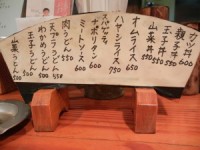 カツ丼 600
親子丼 550
玉子丼 550
山菜丼 550
オムライス 650
ハヤシライス 750
スパゲティ
ナポリタン 600
ミートソース 600
肉うどん 550
天プラうどん 550
わかめうどん 500
玉子うどん 500
山菜うどん 500